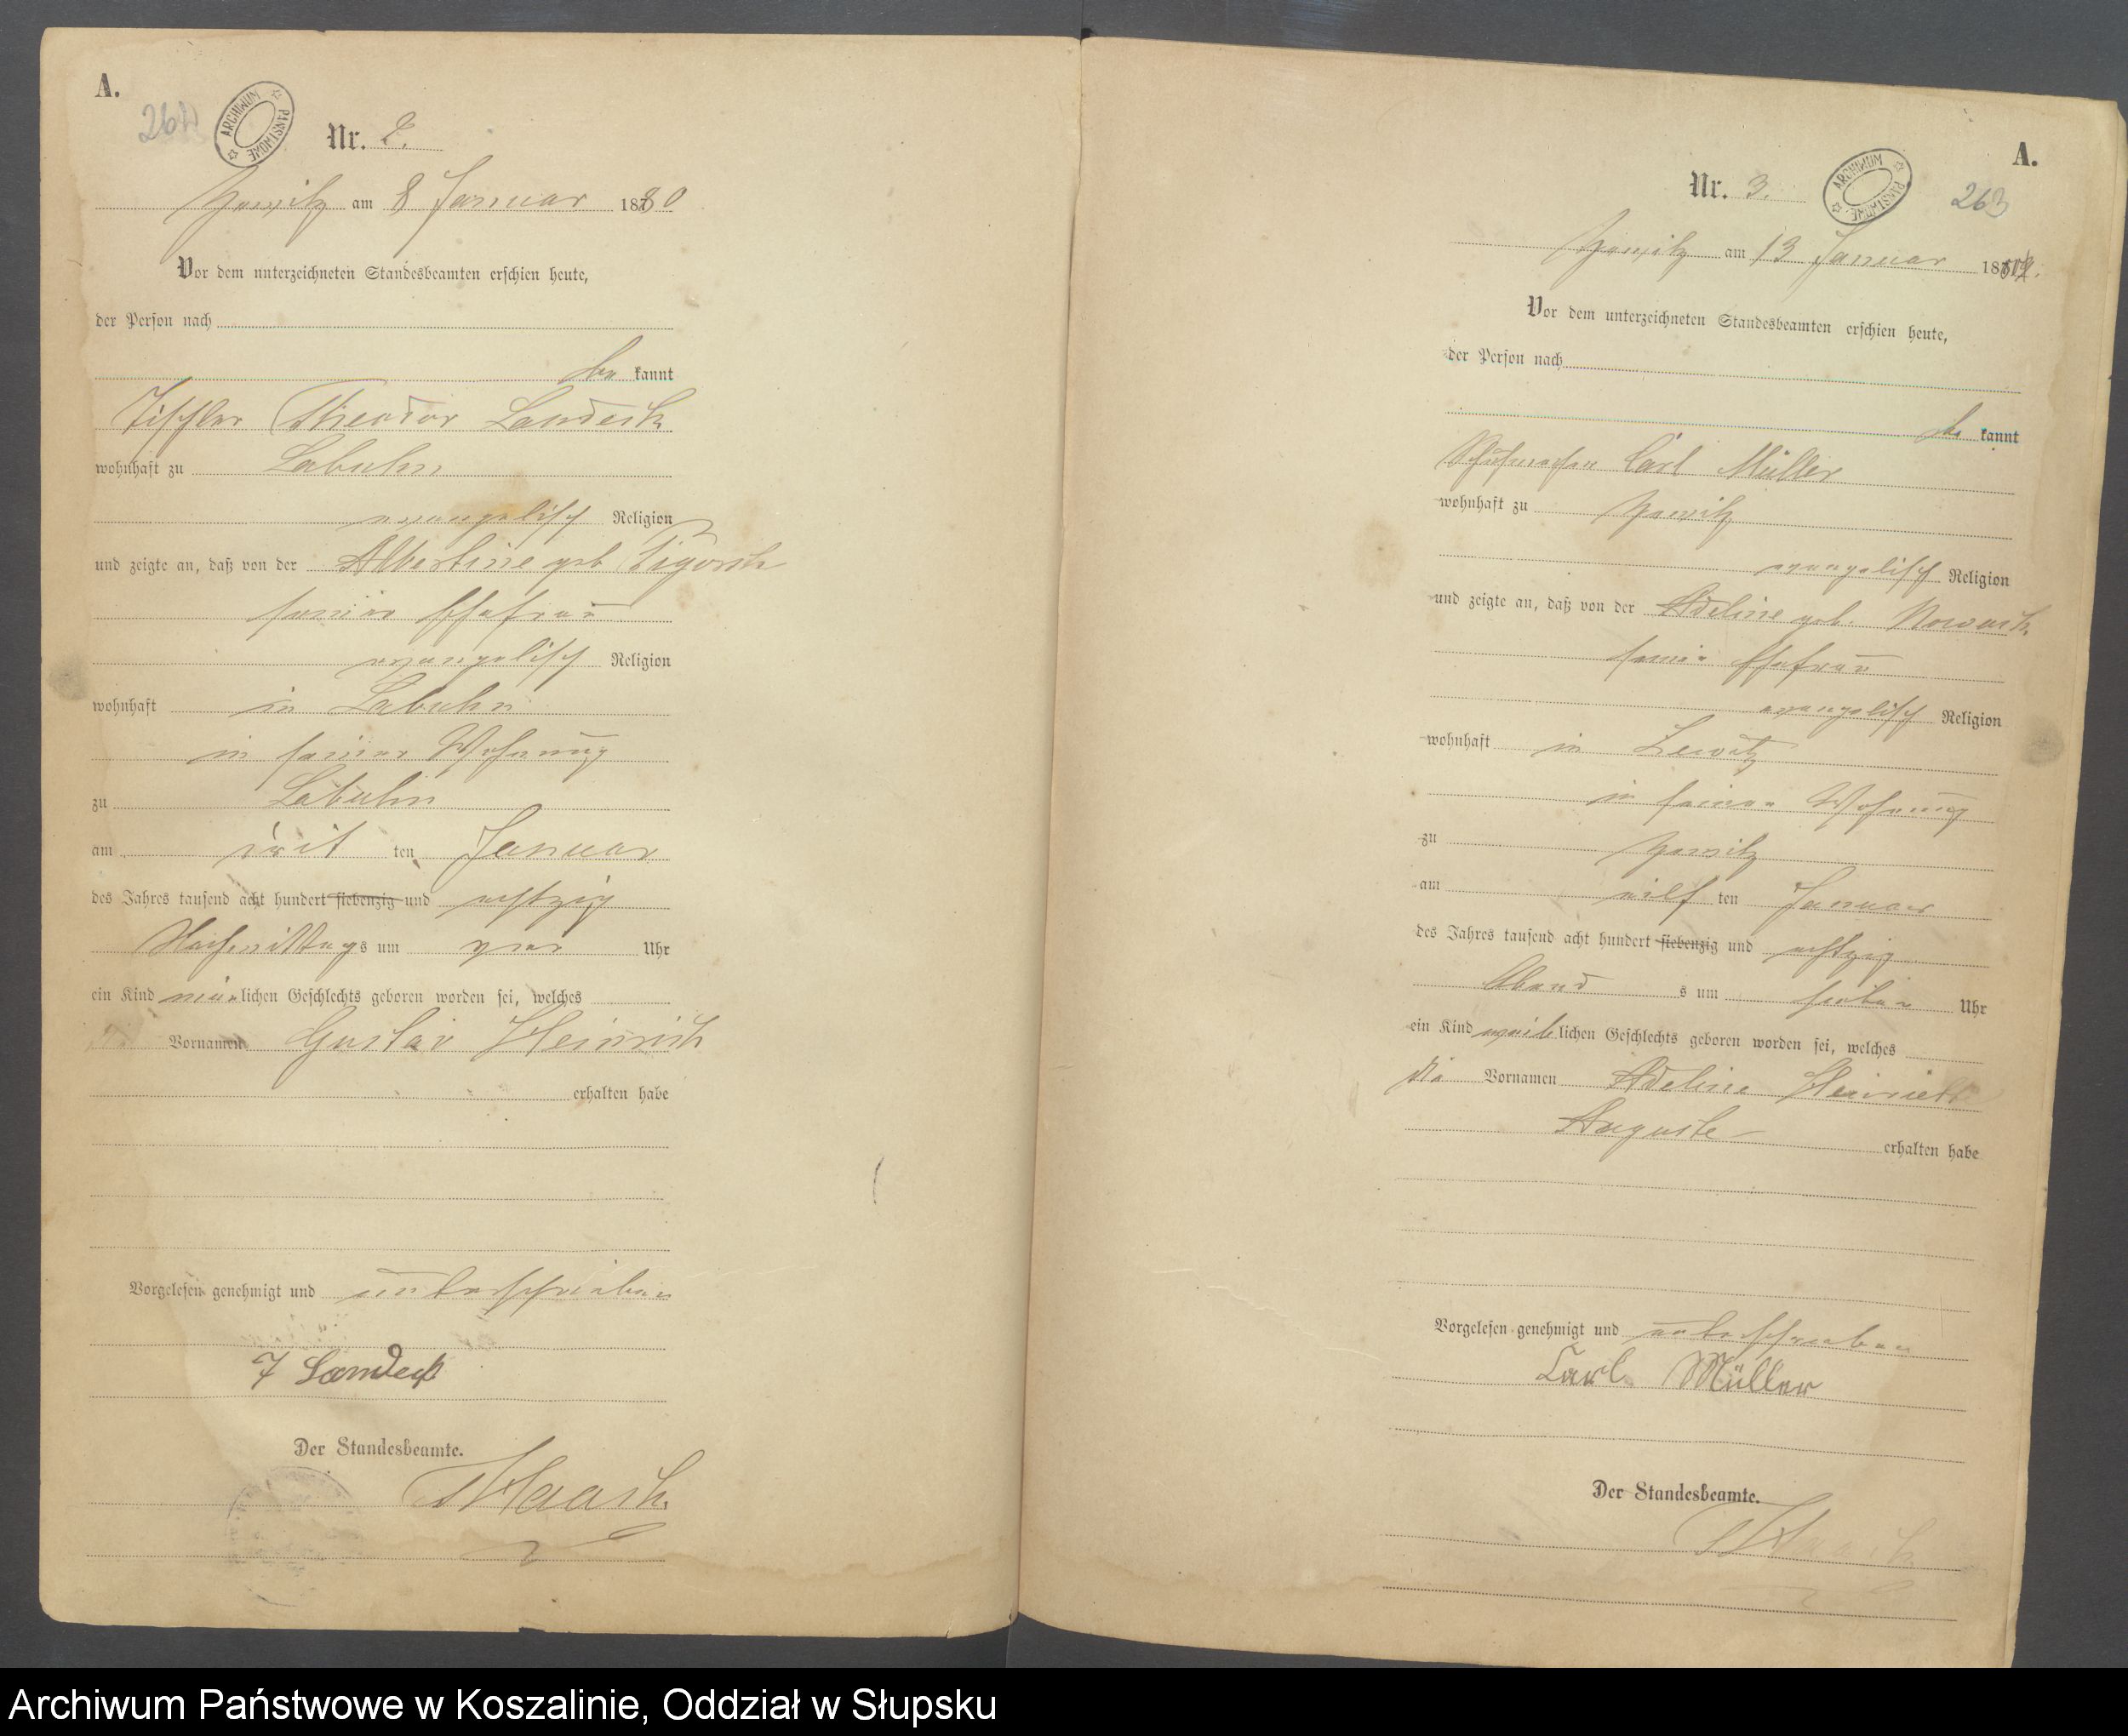 A.
264
ARCHIWUM PAŃSTWOWE
Nr. 2.
am 8 Januar 1880
Vor dem unterzeichneten Standesbeamten erschien heute,
der Person nach
be kannt
Tischler Theodor Landeck
wohnhaft zu Labuhn
evangelisch Religion
und zeigte an, daß von der Albertine geb
seiner Ehefrau
evangelisch Religion
wohnhaft in Labuhn
in seiner Wohnung
zu Labuhn
am ten Januar
des Jahres tausend acht hundert siebenzig und achtzig
Nachmittags um Uhr
ein Kind männlichen Geschlechts geboren worden sei, welches
Vornamen Gustav Heinrich
erhalten habe
Vorgelesen genehmigt und unterschrieben
Landeck
Der Standesbeamte.
Haack
A.
Nr. 3.
ARCHIWUM PAŃSTWOWE
263
am 13 Januar
Vor dem unterzeichneten Standesbeamten erschien heute,
der Person nach
be kannt
Schuhmacher Carl Müller
wohnhaft zu
evangelisch Religion
und zeigte an, daß von der Adeline geb. Nowack
seiner Ehefrau
evangelisch Religion
wohnhaft in
in seiner Wohnung
zu
am eilf ten Januar
des Jahres tausend acht hundert siebenzig und achtzig
Abend s um sieben Uhr
ein Kind weiblichen Geschlechts geboren worden sei, welches
die Vornamen Adeline Henriette
Auguste erhalten habe
Vorgelesen genehmigt und unterschrieben
Carl Müller
Der Standesbeamte.
Haack
Archiwum Państwowe w Koszalinie, Oddział w Słupsku